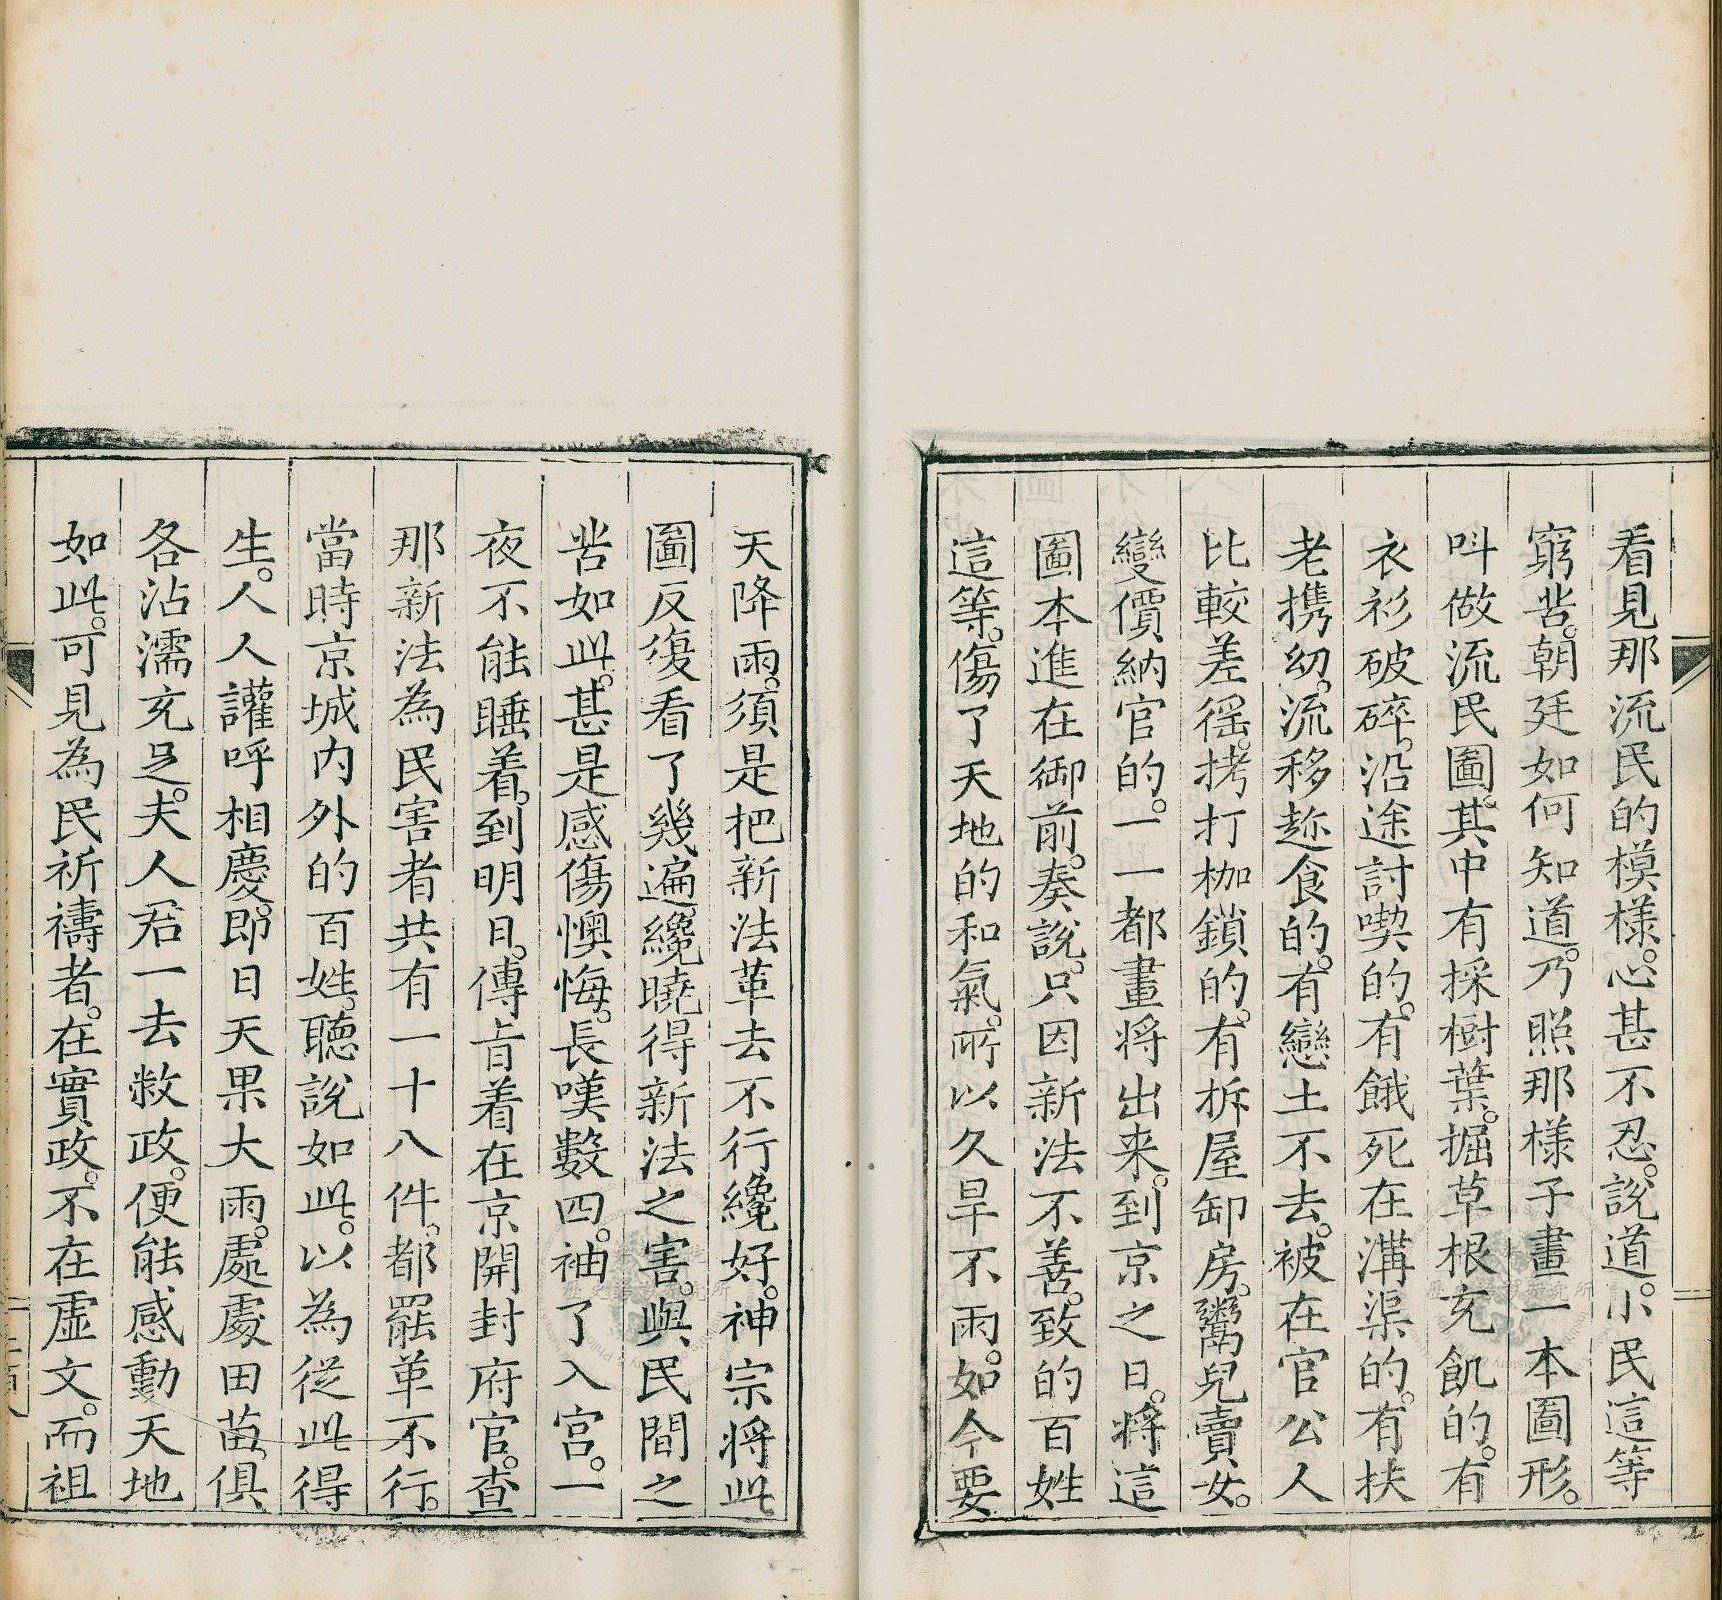 看見那流民的模樣。心甚不忍。說道。小民這等
窮苦。朝廷如何知道。乃照那樣子畫一本圖形。
呌做流民圖。其中有採樹葉。掘草根充飢的。有
衣衫破碎。沿途討喫的。有餓死在溝渠的。有扶
老携幼。流移趂食的。有戀土不去。被在官公人
比較差徭。拷打枷鎖的。有拆屋卸房。鬻兒賣女。
變價納官的。一一都畫將出来。到京之日。將這
圖本進在御前。奏說。只因新法不善。致的百姓
這等。傷了天地的和氣。所以久旱不雨。如今要
天降雨。須是把新法革去不行纔好。神宗將此
圖反復看了幾遍。纔曉得新法之害。與民間之
苦如此。甚是感傷懊悔。長嘆數四。袖了入宫。一
夜不能睡着。到明日。傳旨着在京開封府官。查
那新法為民害者共有一十八件。都罷革不行。
當時京城内外的百姓。聽說如此。以為從此得
生。人人讙呼相慶。即日天果大雨。處處田苗。俱
各沾濡充足。夫人君一去敝政。便能感動天地
如此。可見為民祈禱者。在實政。不在虛文。而祖